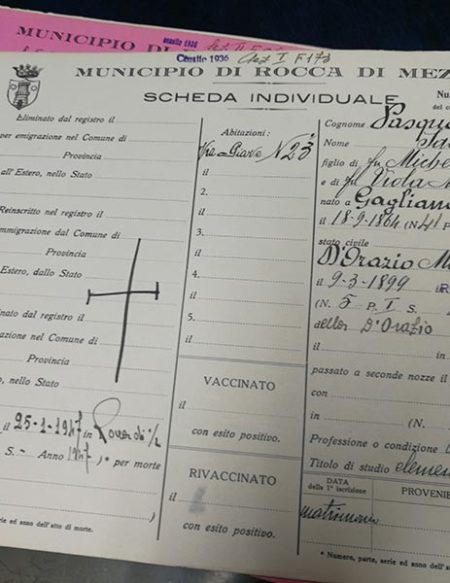 MUNICIPIO DI
Censito 1936
MUNICIPIO DI ROCCA DI MEZ
SCHEDA INDIVIDUALE
Nu
del co
Eliminato dal registro il
per emigrazione nel Comune di
Provincia
all'Estero, nello Stato
Reinscritto nel registro il
mmigrazione dal Comune di
Provincia
Estero, dallo Stato
inato dal registro il
razione nel Comune di
Provincia
o, nello Stato
il 25-1-1947 in
S. - Anno 1947 ) * per morte
)
serie ed anno dell'atto di morte.
Abitazioni :
Via Piave N 23
il
2.
il
3.
il
4.
il
5.
il
VACCINATO
il
con esito positivo.
RIVACCINATO
il
con esito positivo.
Cognome Pasqu
Nome
figlio di fu Miche
e di fu Viola M
nato a Gagliano
il 18-9-1864 (N 41 P
stato civile
D'Orazio M
il 9-3-1899
(N. 5 P. I S.
della D'Orazio
il in
passato a seconde nozze il
con
in (N.
Professione o condizione
Titolo di studio elemen
DATA
della 1ª iscrizione
PROVENIE
matrimonio
* Numero, parte, serie ed anno dell'